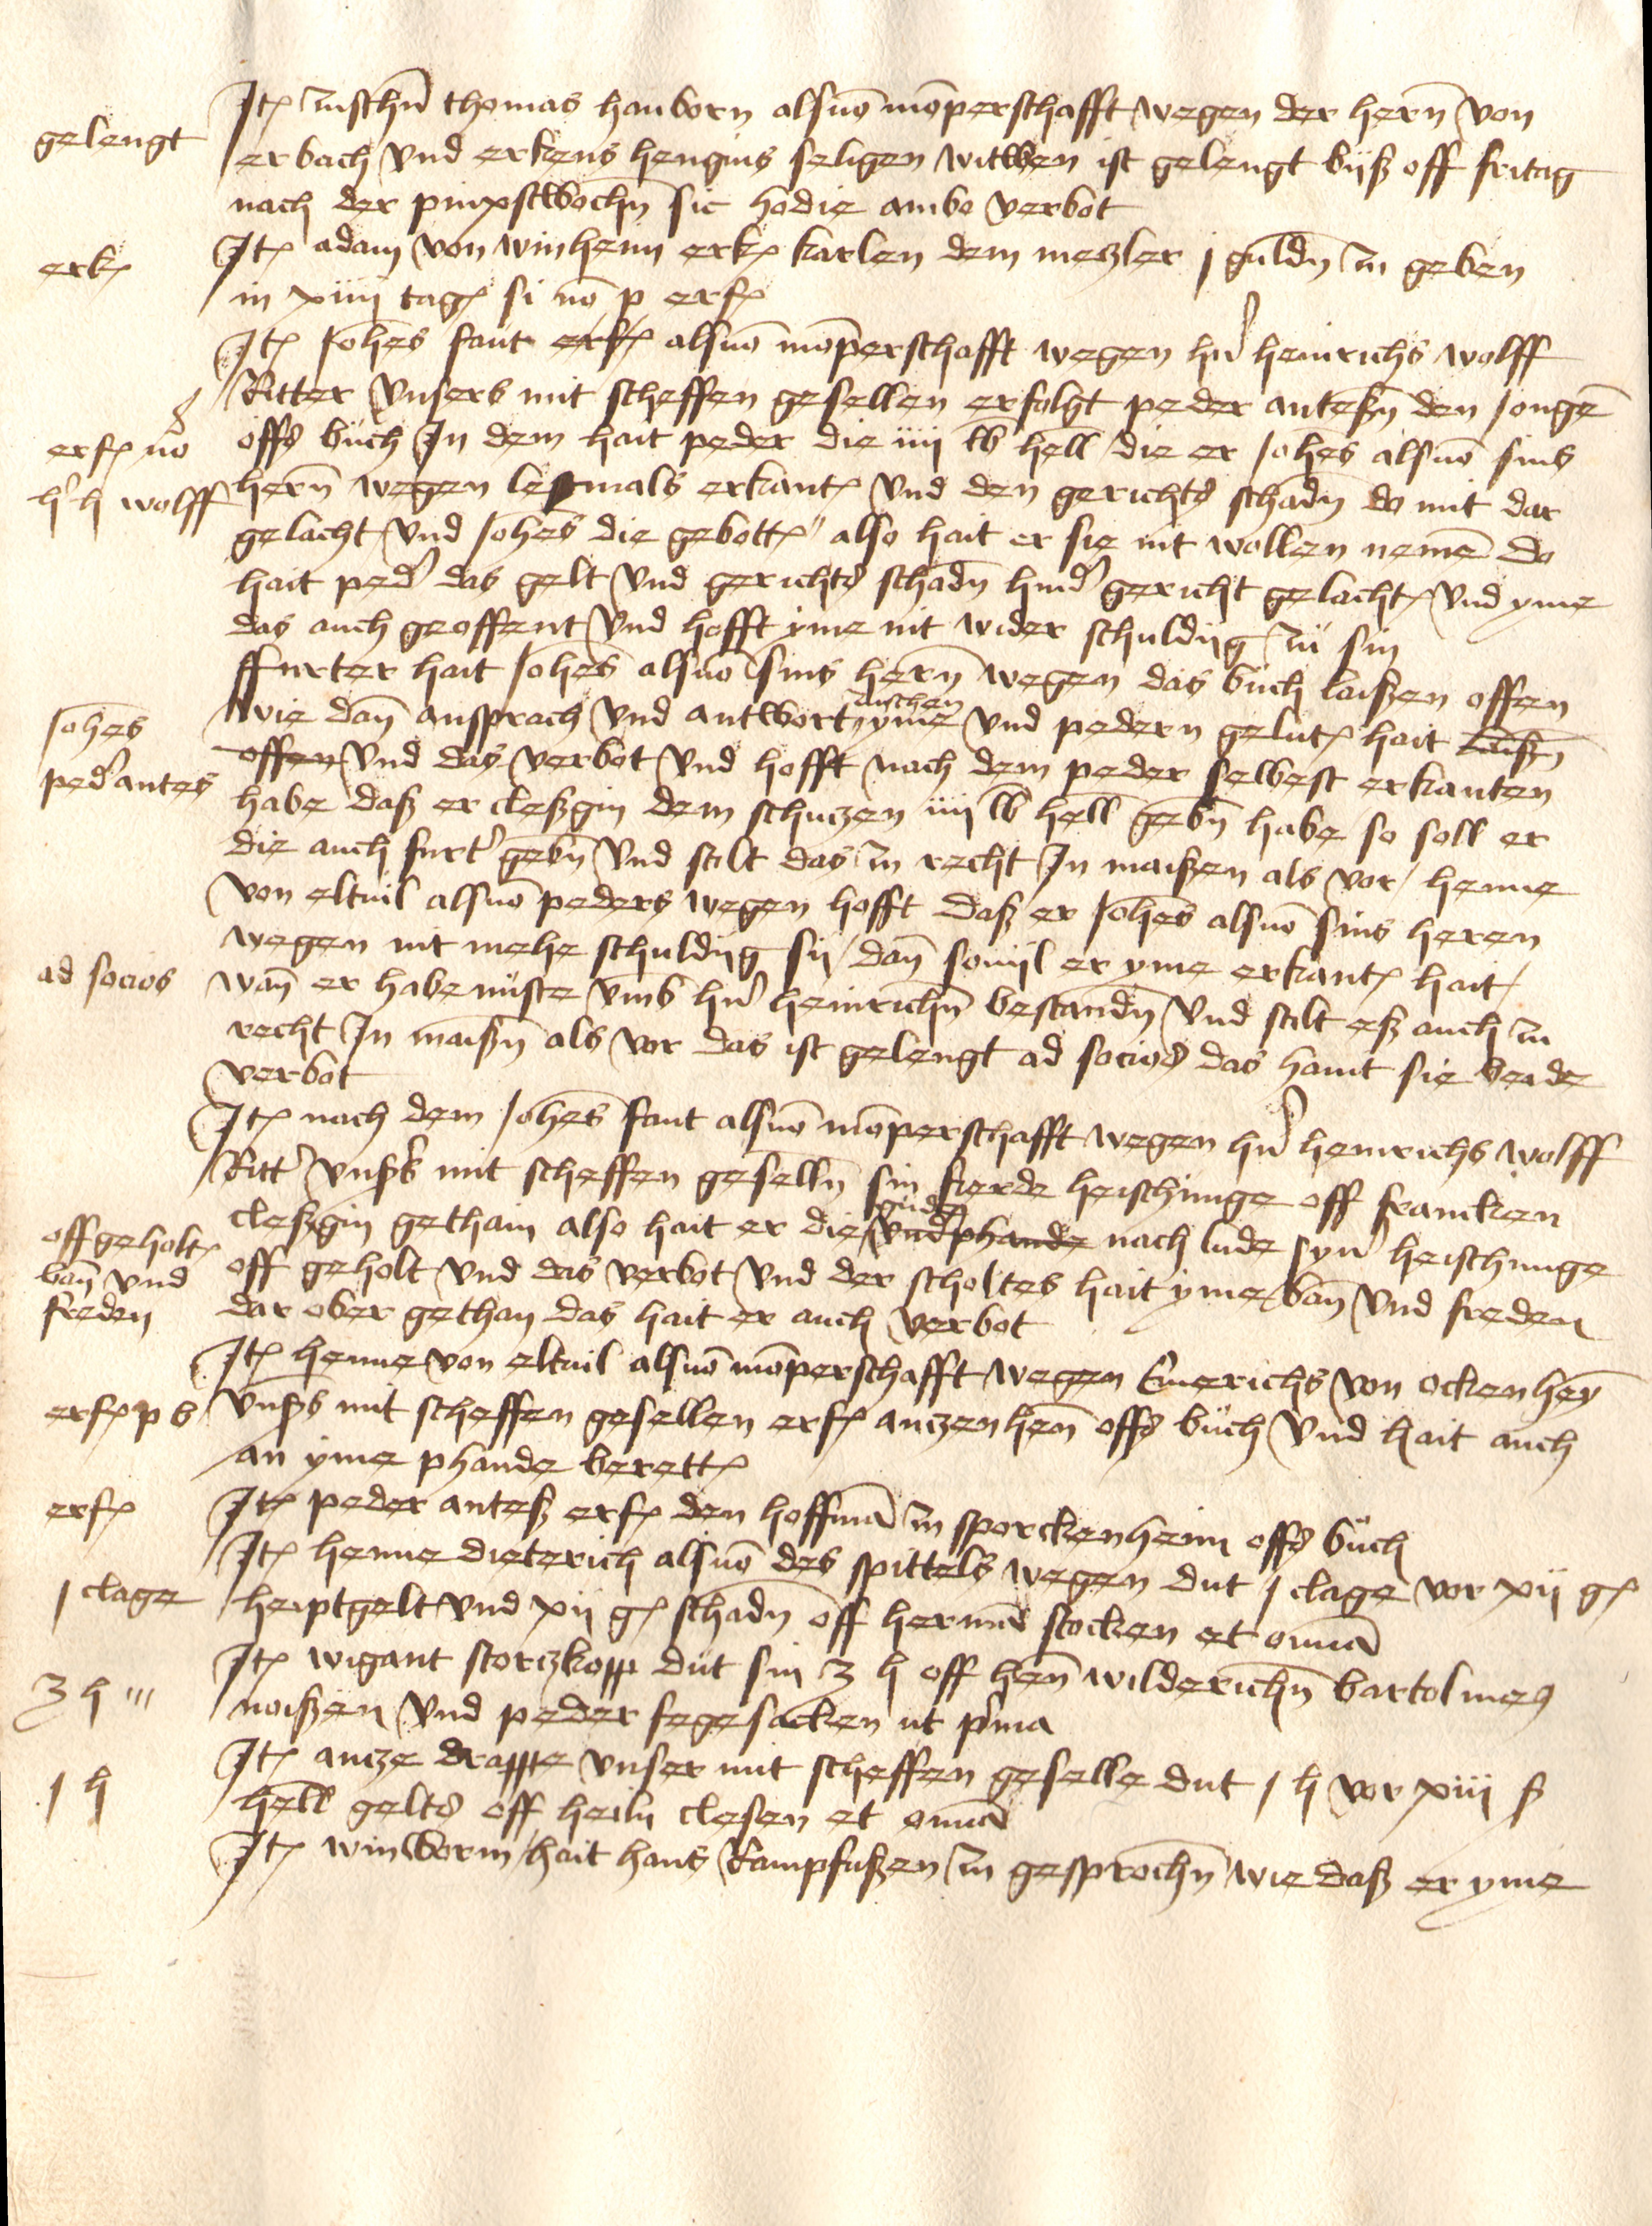 Jt(em) zusch(e)n thomas hanborn als vo(n) mo(m)perschafft wegen der her(e)n von
gelengt
erbach vnd erkens hengins seligen witwen ist gelengt byß off fritag
nach der pinxstwoch(e)n sic hodie ambo verbot
erk(en)
Jt(em) adam von winheim erk(en) karlen dem meczler j guld(e)n zu geben
in xiiij tag(en) si no(n) p(ignora) erf(olgt)
Jt(em) Joh(ann)es faut erf(olgt) als vo(n) mo(m)perschafft wegen h(er)n heinrichs wolff
Ritter vnsers mit scheffen gesellen erfolgt peder anteß(e)n den Jonge(n)
erf(olgt) no(mine)
h(er) h wolff
offs buch Jn dem hait peder die iiij lb hell(er) die er Joh(ann)es als vo(n) sins
her(e)n wegen lestmals erkant(e) vnd den gerichts schad(e)n do mit dar
gelacht vnd Joh(ann)es die gebott(en) also hait er sie nit wollen neme(n) Do
hait ped(er) das gelt vnd gerichts schad(e)n hind(er) gericht gelacht(en) vnd yme
das auch geoffent vnd hofft yme nit wider schuldig zu sin
ffurter hait Joh(ann)es als vo(n) sins her(e)n wegen das buch laißen offen
Joh(ann)es
ped(er) antes
wie dan(n) ansprach vnd antwort zuschen yme vnd pedern gelut(en) hait laiß(e)n
offen vnd das verbot vnd hofft nach dem peder selbest erkanten
habe daß er cleßgin dem schuczen iiij lb hell(er) geb(e)n habe so soll er
die auch furt(er) geb(e)n vnd stilt das zu recht Jn maißen als vor / henne
von eltuil als vo(n) peders wegen hofft daß er Joh(ann)es als vo(n) sins heren
wegen nit mehe schuldig sy / dan(n) souyl er yme erkant(en) hait /
ad socios
wan(n) er habe nuste vmb h(er)n heinrich(e)n bestand(e)n vnd stilt eß auch zu
recht Jn maiß(e)n als vor das ist gelengt ad socios das hant sie beide
verbot
Jt(em) nach dem Joh(ann)es faut als vo(n) mo(m)perschafft wegen h(er)n heinrichs wolff
Ritt(er) vnß(er)s mit scheffen gesell(e)n sin fierde heischunge off francken
cleßgin gethain also hait er die gude vnd phande nach lude syn(er) heischunge
offgeholt(en)
ban(n) vnd
freden
off geholt vnd das verbot vnd der scholtes hait yme ban(n) vnd freden
dar ober gethan das hait er auch verbot
Jt(em) henne von eltuil als vo(n) mo(m)perschafft wegen Emerichs von ockenhey(m)
erf(olgt) p b
vnß(er)s mit scheffen gesellen erf(olgt) anczen hen(ne) offs buch vnd hait auch
an yme phande berett(en)
erf(olgt)
Jt(em) peder anteß erf(olgt) den hoffma(n) zu sporckenheim offs buch
Jt(em) henne dieterich als vo(n) des spittels wegen dut j clage vor xij g(ulden)
j clage
heiptgelt vnd xij g(ulden) schad(e)n off herma(n) stocken et om(n)ia
Jt(em) wigant storczkopp dut sin 3 h off hen(ne) wilderich(e)n bartolmes
3 h ııı
noißen vnd peder fegesacken ut p(ri)ma
Jt(em) ancze drappe vnser mit scheffen geselle dut j h vor xiij ß
j h
hell(er) gelts off heiln clesen et om(n)ia
Jt(em) winworm hait hans Rampfußen zu gesproch(e)n wie daß er yme